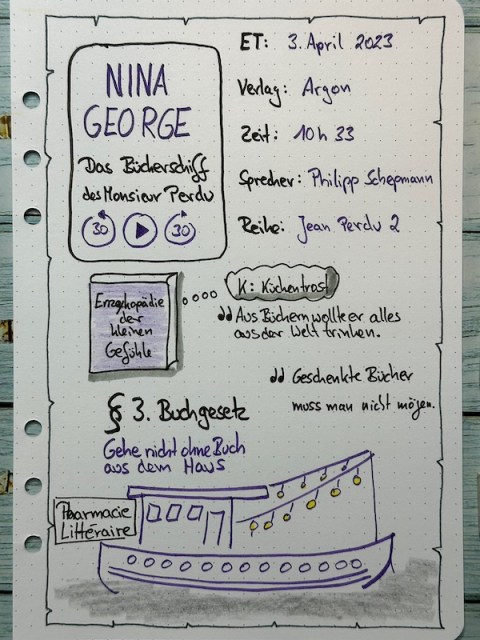 NINA
GEORGE
Das Bücherschiff
des Monsieur Perdu
30 30
ET: 3. April 2023
Verlag: Argon
Zeit: 10h 33
Sprecher: Philipp Schepmann
Reihe: Jean Perdu 2
Enzyklopädie
der
kleinen
Gefühle
K: Küchentrost
Aus Büchern wollte er alles
aus der Welt trinken.
Geschenkte Bücher
muss man nicht mögen.
§ 3. Buchgesetz
Gehe nicht ohne Buch
aus dem Haus
Pharmacie
Littéraire